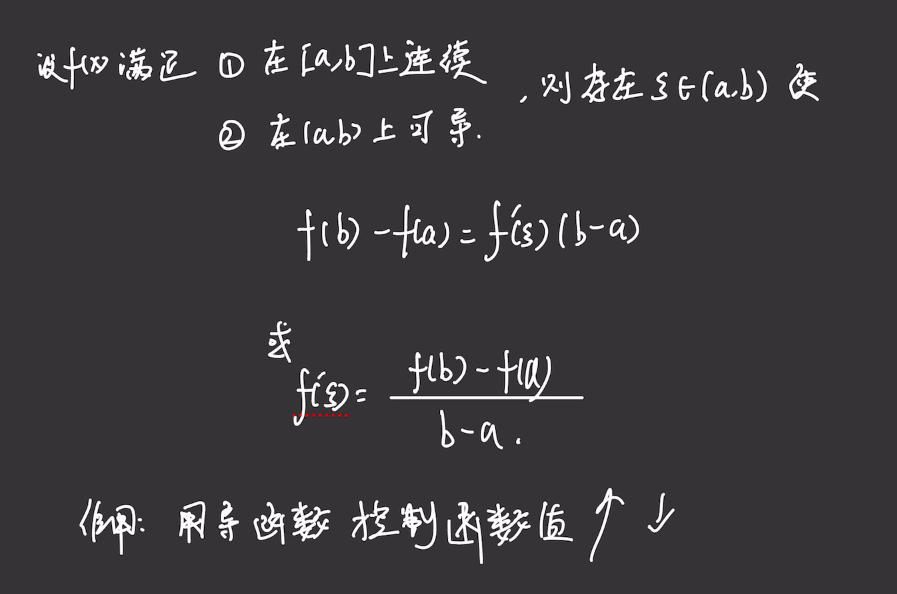 设f(x)满足 ① 在[a,b]上连续
② 在(a,b)上可导.
,则存在ξ∈(a,b) 使
f(b)-f(a)=f'(ξ)(b-a)
或
f'(ξ)= \frac{f(b)-f(a)}{b-a}.
作用: 用导函数控制函数值↑↓